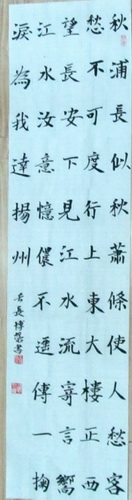 秋浦長似秋蕭條使人愁客
愁不可度行上東大樓正西
望長安下見江水流寄言嚮
江水汝意憶儂不遥傳一掬
淚為我達揚州